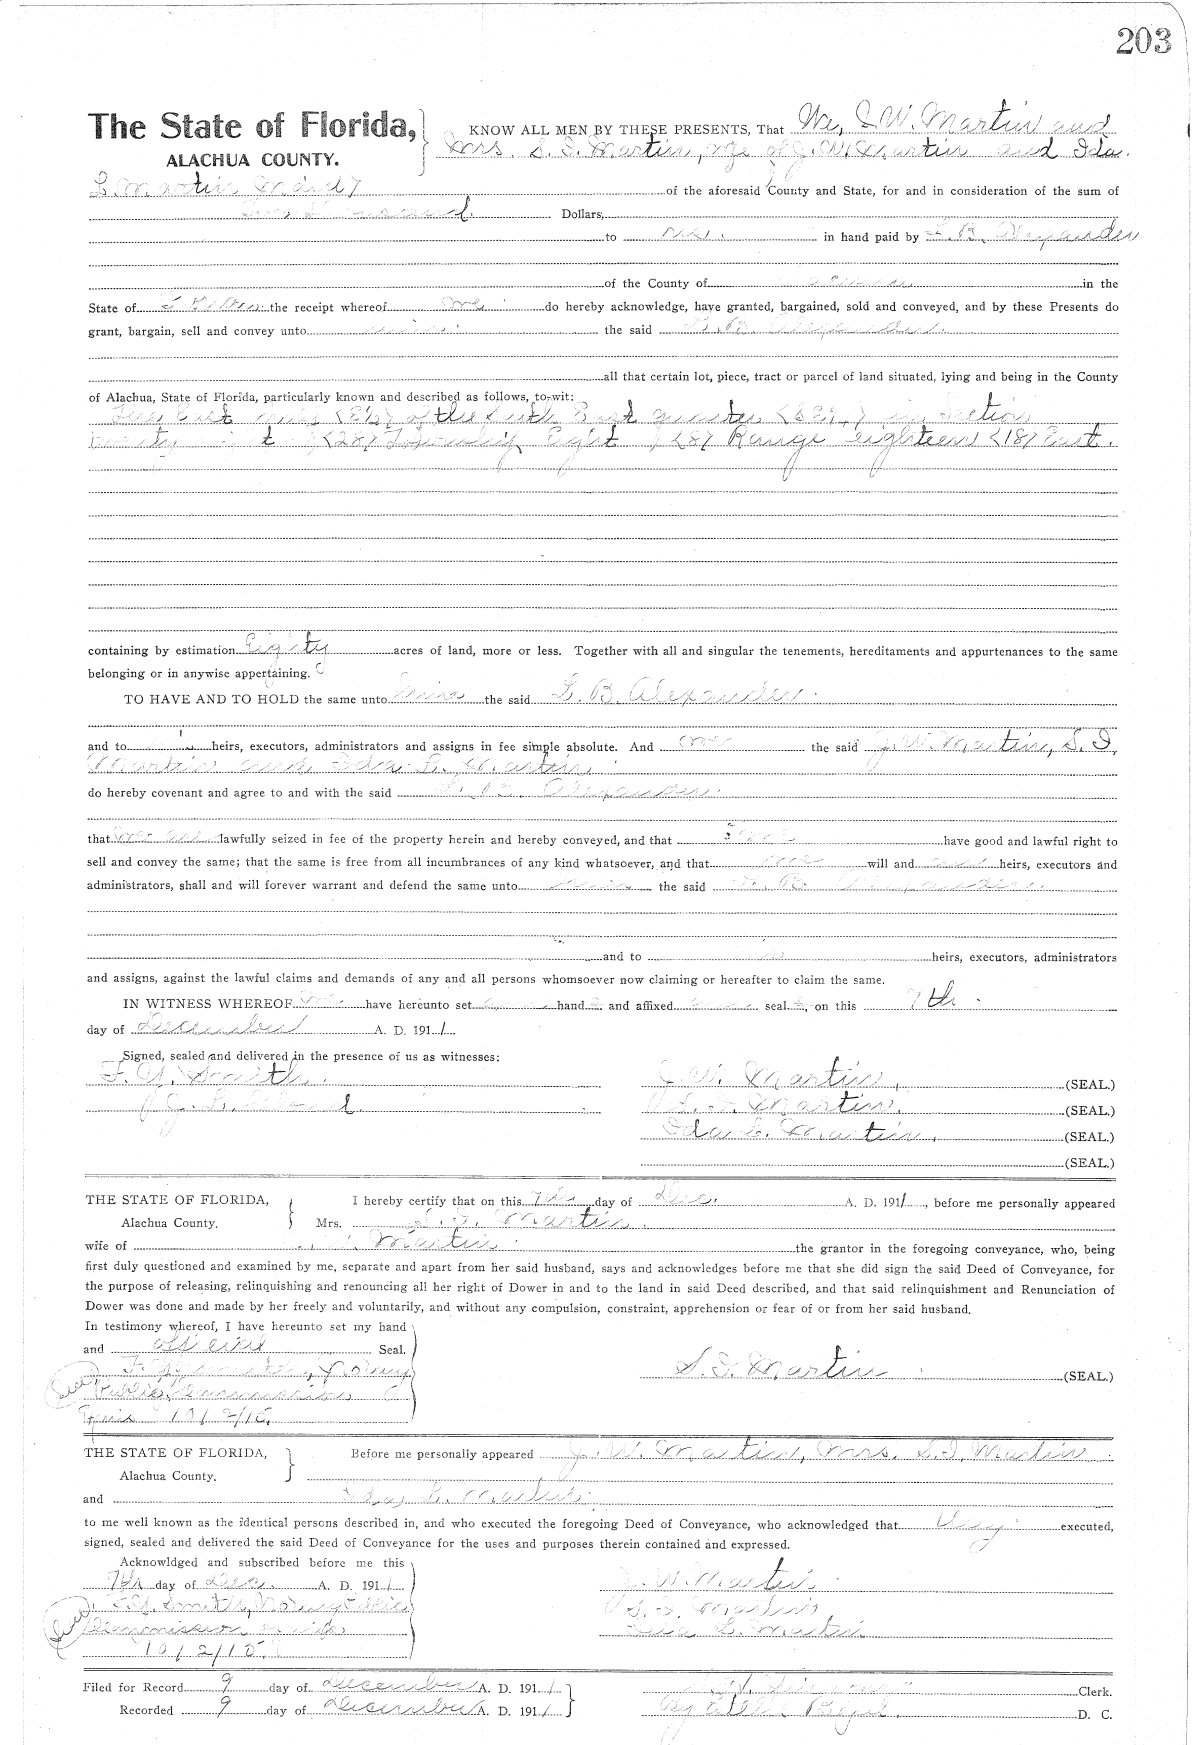 203
The State of Florida, KNOW ALL MEN BY THESE PRESENTS, That We, J. W. Martin and
ALACHUA COUNTY. Mrs. S. I. Martin, wife of J. W. Martin and Ida
L. Martin of the aforesaid County and State, for and in consideration of the sum of
Thousand Dollars,
to in hand paid by L. B. Alexander
of the County of in the
State of the receipt whereof we do hereby acknowledge, have granted, bargained, sold and conveyed, and by these Presents do
grant, bargain, sell and convey unto him the said L. B. Alexander.
all that certain lot, piece, tract or parcel of land situated, lying and being in the County
of Alachua, State of Florida, particularly known and described as follows, to-wit:
The East half (E½) of the South East quarter (SE¼) in Section
twenty eight (28) Township Eight (8) Range eighteen (18) East.
containing by estimation Eighty acres of land, more or less. Together with all and singular the tenements, hereditaments and appurtenances to the same
belonging or in anywise appertaining.
TO HAVE AND TO HOLD the same unto him the said L. B. Alexander.
and to heirs, executors, administrators and assigns in fee simple absolute. And we the said J. W. Martin, S. I.
Martin and Ida L. Martin
do hereby covenant and agree to and with the said L. B. Alexander.
that we are lawfully seized in fee of the property herein and hereby conveyed, and that we have good and lawful right to
sell and convey the same; that the same is free from all incumbrances of any kind whatsoever, and that we will and our heirs, executors and
administrators, shall and will forever warrant and defend the same unto him the said L. B. Alexander.
and to heirs, executors, administrators
and assigns, against the lawful claims and demands of any and all persons whomsoever now claiming or hereafter to claim the same.
IN WITNESS WHEREOF we have hereunto set our hands and affixed our seals, on this 7th
day of December A. D. 1911.
Signed, sealed and delivered in the presence of us as witnesses:
F. Y. Smith. J. W. Martin, (SEAL.)
J. L. S. I. Martin. (SEAL.)
Ida L. Martin, (SEAL.)
(SEAL.)
THE STATE OF FLORIDA, I hereby certify that on this 7th day of Dec. A. D. 1911, before me personally appeared
Alachua County. Mrs. S. I. Martin.
wife of J. W. Martin the grantor in the foregoing conveyance, who, being
first duly questioned and examined by me, separate and apart from her said husband, says and acknowledges before me that she did sign the said Deed of Conveyance, for
the purpose of releasing, relinquishing and renouncing all her right of Dower in and to the land in said Deed described, and that said relinquishment and Renunciation of
Dower was done and made by her freely and voluntarily, and without any compulsion, constraint, apprehension or fear of or from her said husband.
In testimony whereof, I have hereunto set my hand
and official Seal.
F. Y. Smith, Notary S. I. Martin (SEAL.)
Public. Commission
10/2/15.
THE STATE OF FLORIDA, Before me personally appeared J. W. Martin, Mrs. S. I. Martin
Alachua County.
and Ida L. Martin
to me well known as the identical persons described in, and who executed the foregoing Deed of Conveyance, who acknowledged that they executed,
signed, sealed and delivered the said Deed of Conveyance for the uses and purposes therein contained and expressed.
Acknowldged and subscribed before me this
7th day of Dec. A. D. 1911. J. W. Martin
F. Y. Smith, Notary Public S. I. Martin
Commission Ida L. Martin
10/2/15.
Filed for Record 9 day of December A. D. 1911. Clerk.
Recorded 9 day of December A. D. 1911. By D. C.